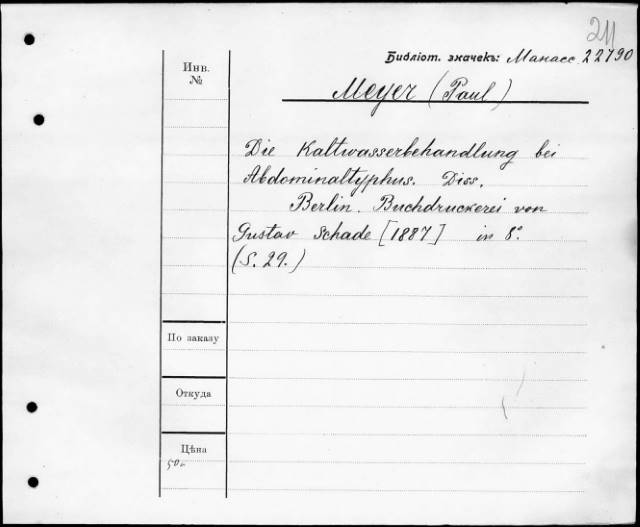 211
Библіот. значекъ: Манасс. 22790
Инв.
№
Meyer (Paul)
Die Kaltwasserbehandlung bei
Abdominaltyphus. Diss.
Berlin. Buchdruckerei von
Gustav Schade [1887] in 8°
(S. 29.)
По заказу
Откуда
Цѣна
50к